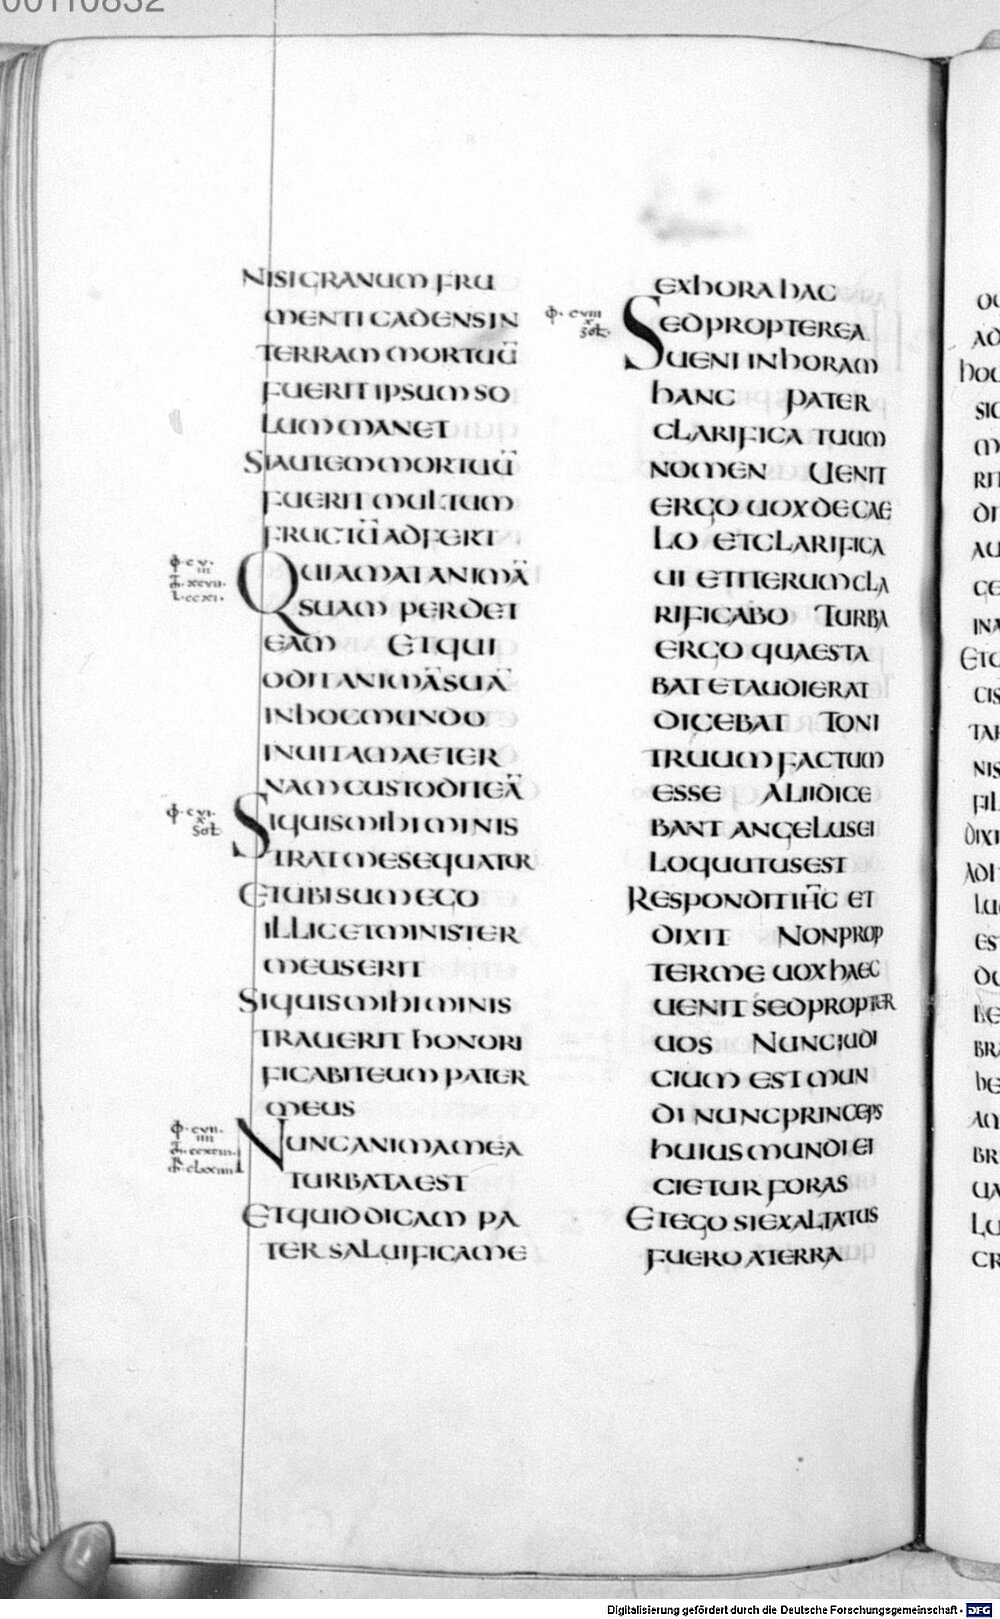 00110832
NISI GRANUM FRU
MENTI CADENS IN
TERRAM MORTUŪ
FUERIT IPSUM SO
LUM MANET
SI AUTEM MORTUŪ
FUERIT MULTUM
FRUCTŪ ADFERT
QUI AMAT ANIMĀ
SUAM PERDET
EAM ET QUI
ODIT ANIMĀ SUĀ
IN HOC MUNDO
IN UITAM AETER
NAM CUSTODIT EĀ
SI QUIS MIHI MINIS
TRAT ME SEQUATUR
ET UBI SUM EGO
ILLIC ET MINISTER
MEUS ERIT
SI QUIS MIHI MINIS
TRAUERIT HONORI
FICABIT EUM PATER
MEUS
NUNC ANIMA MEA
TURBATA EST
ET QUID DICAM PA
TER SALUIFICA ME
EX HORA HAC
SED PROPTEREA
UENI IN HORAM
HANC PATER
CLARIFICA TUUM
NOMEN UENIT
ERGO UOX DE CAE
LO ET CLARIFICA
UI ET ITERUM CLA
RIFICABO TURBA
ERGO QUAE STA
BAT ET AUDIERAT
DICEBAT TONI
TRUUM FACTUM
ESSE ALII DICE
BANT ANGELUS EI
LOQUUTUS EST
RESPONDIT IH̄C ET
DIXIT NON PROP
TER ME UOX HAEC
UENIT SED PROPTER
UOS NUNC IUDI
CIUM EST MUN
DI NUNC PRINCEPS
HUIUS MUNDI EI
CIETUR FORAS
ET EGO SI EXALTATUS
FUERO A TERRA
Digitalisierung gefördert durch die Deutsche Forschungsgemeinschaft - DFG